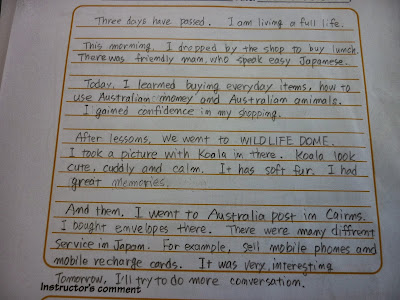 Three days have passed. I am living a full life.
This morning, I dropped by the shop to buy lunch.
There was friendly man, who speak easy Japanese.
Today, I learned buying everyday items, how to
use Australian money and Australian animals.
I gained confidence in my shopping.
After lessons, we went to WILDLIFE DOME.
I took a picture with Koala in there. Koala look
cute, cuddly and calm. It has soft fur. I had
great memories.
And then, I went to Australia post in Cairns.
I bought envelopes there. There were many diffrent
service in Japan. For example, sell mobile phones and
mobile recharge cards. It was very interesting
Tomorrow, I'll try to do more conversation.
Instructor's comment